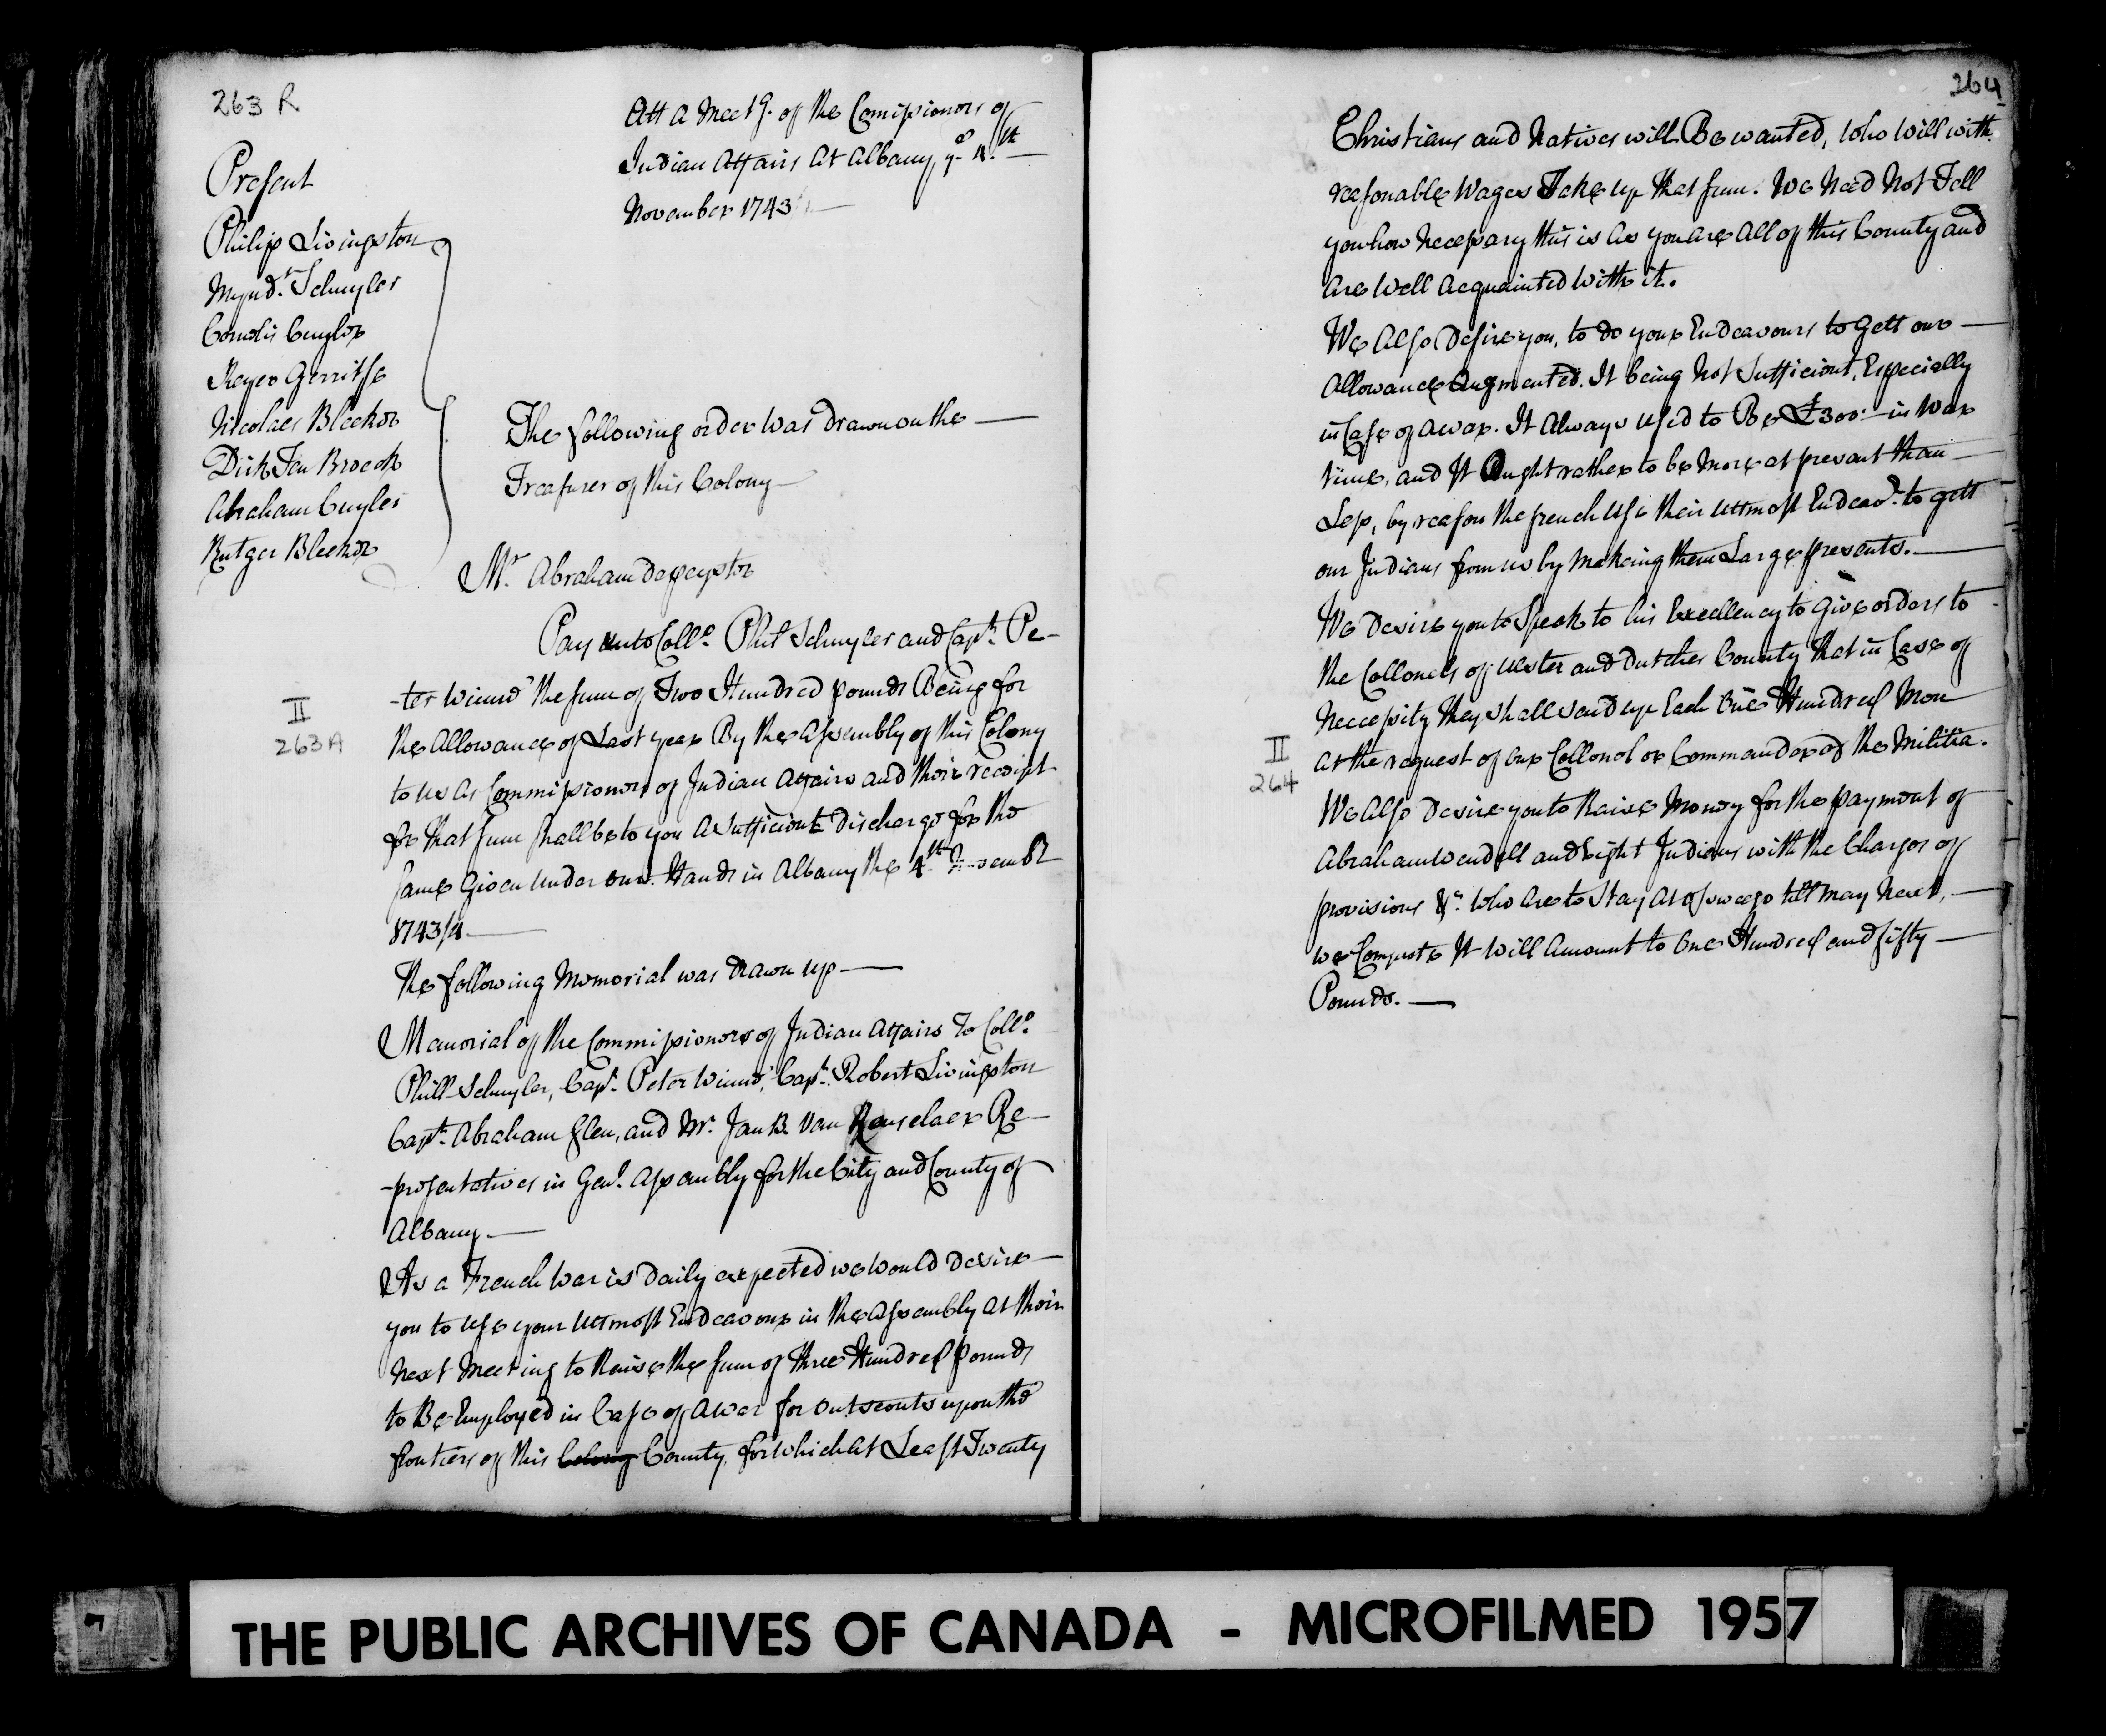 263 R
Att a Meet g. of the Comissioners of
Indian Affairs At Albany, ye 4th
November 1743
Present
Philip Livingston
Mynd.t Schuyler
Cornelis Cuyler
Reyer Gerritse
Nicolaes Bleeker
Dirk Ten Broeck
Abraham Cuyler
Rutger Bleeker
The following order was drawn on the —
Treasurer of this Colony —
Mr. Abraham Depeyster
Pay unto Collo. Phil Schuyler and Capt. Pe-
-ter Winne the sum of Two Hundred pounds Being for
the Allowance of Last year By the Assembly of this Colony
to us As Commissioners of Indian Affairs and their receipt
for that sum shall be to you A sufficient Discharge for the
same Given under our Hands in Albany the 4th
1743/4
II
263A
The following Memorial was drawn up —
Memorial of the Commissioners of Indian Affairs To Collo.
Phill Schuyler, Capt. Peter Winne, Capt. Robert Livingston
Capt. Abraham Glen, and Mr. Jan B. Van Renselaer Re-
-presentatives in Genl. Assembly for the City and County of
Albany. —
As a French War is Daily expected we Would Desire —
you to use your Utmost Endeavour in the Assembly At their
Next Meeting to Raise the sum of three Hundred pounds
to Be Employed in Case of A war for outscouts upon the
frontiers of this Colony County, for which At Least Twenty
264
Christians and Natives will Be wanted, Who Will with
reasonable Wages Take up that sum. We Need Not Tell
you how Necessary this is As you Are All of this County and
Are Well Acquainted With it.
We Also Desire you, to do your Endeavours to gett our —
Allowance Augmented. It being Not Sufficient, Especially
in Case of A war. It Always Used to Be £300:— in War
time, and It Ought rather to be More at present than —
Less, by reason the french Use their Uttmost Endeavr. to gett
our Indians from us by Makeing them Large presents. —
We Desire you to Speak to his Excellency to Give orders to
the Collonels of Ulster and Dutches County that in Case of
Necessity they shall send up Each One Hundred Men
At the request of our Collonel or Commander of the Militia.
II
264
We Also Desire you to Raise Money for the payment of
Abraham Wendell and Eight Indians with the Charges of
provisions &c. Who Are to Stay At Osweego till May Next, —
we Compute It Will Amount to One Hundred and fifty —
Pounds. —
THE PUBLIC ARCHIVES OF CANADA - MICROFILMED 1957